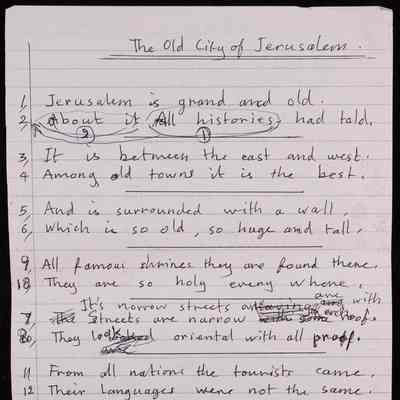 The Old City of Jerusalem.
1, Jerusalem is grand and old.
2, About it All histories had told.
2 1
3, It is between the east and west.
4 Among old towns it is the best.
5, And is surrounded with a wall,
6, Which is so old, so huge and tall,
9, All famous shrines they are found there.
10, They are so holy every where.
It's narrow streets are with
7, The Streets are narrow with some roofs.
8, They look oriental with all proof.
11 From all nations the tourists came,
12 Their languages were not the same.